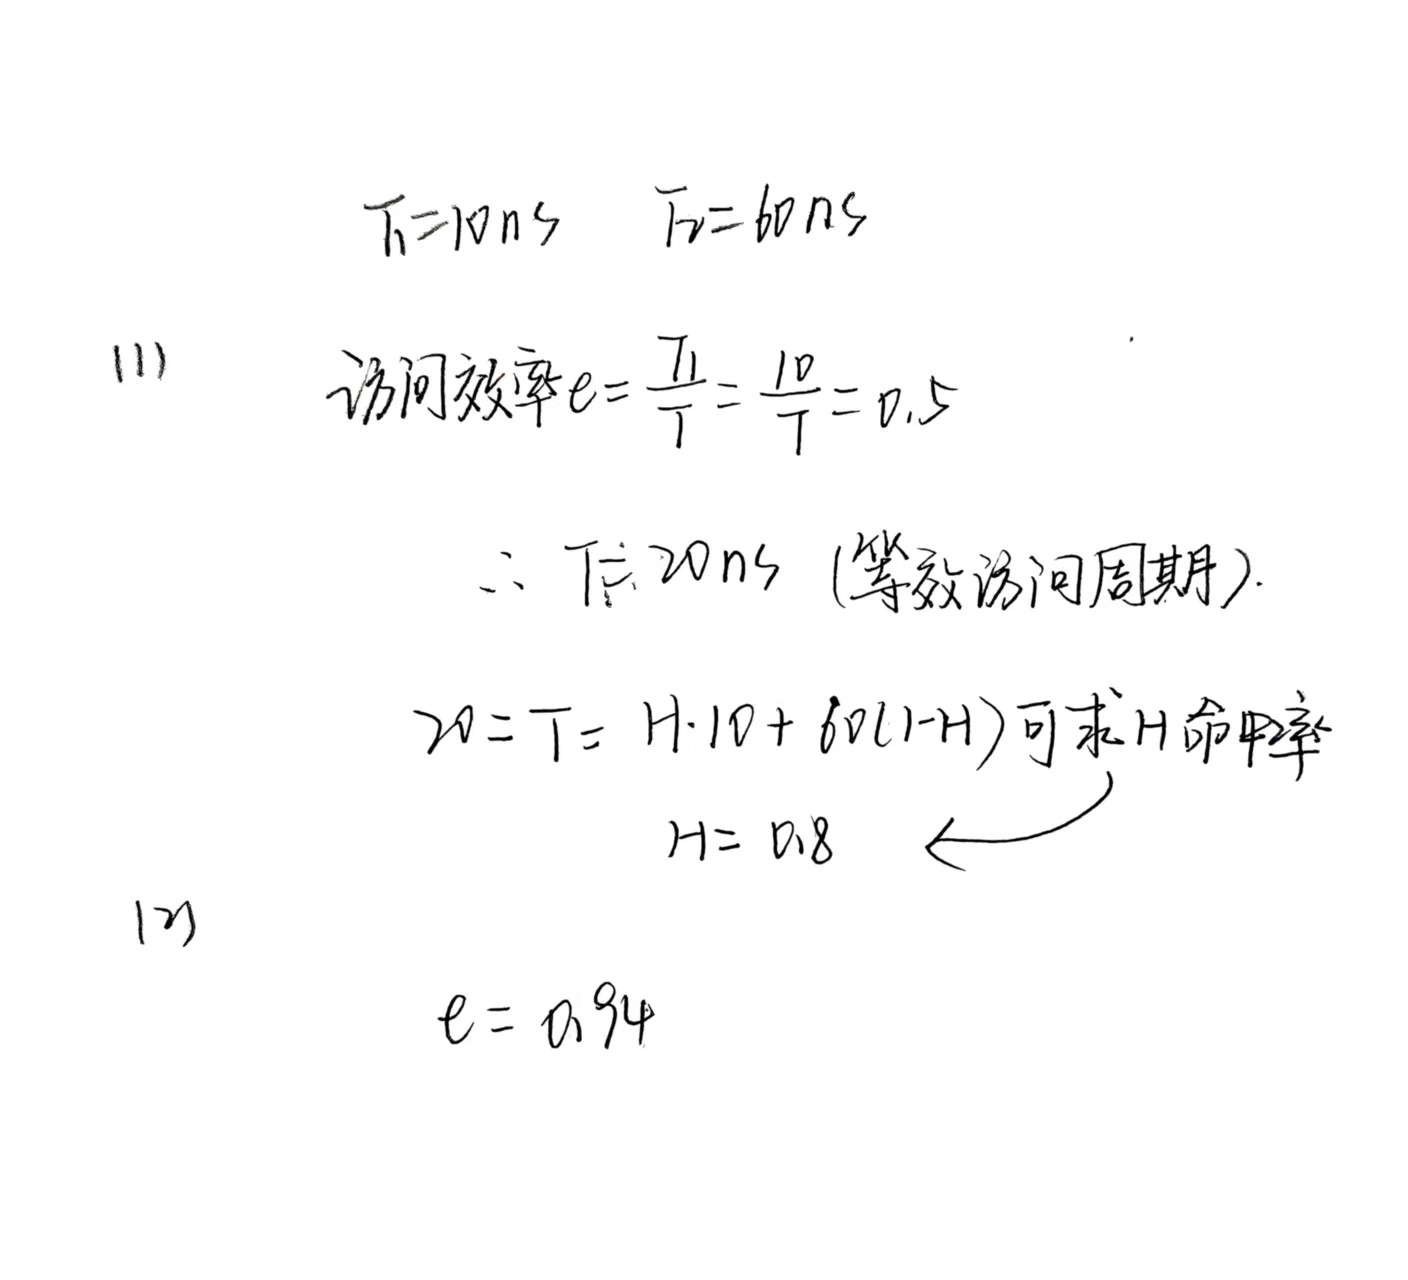 T₁=10ns T₂=60ns
(1) 访问效率e=T₁/T=10/T=0.5
∴ T=20ns (等效访问周期).
20=T=H·10+60(1-H)可求H命中率
H=0.8
(2)
e=0.94